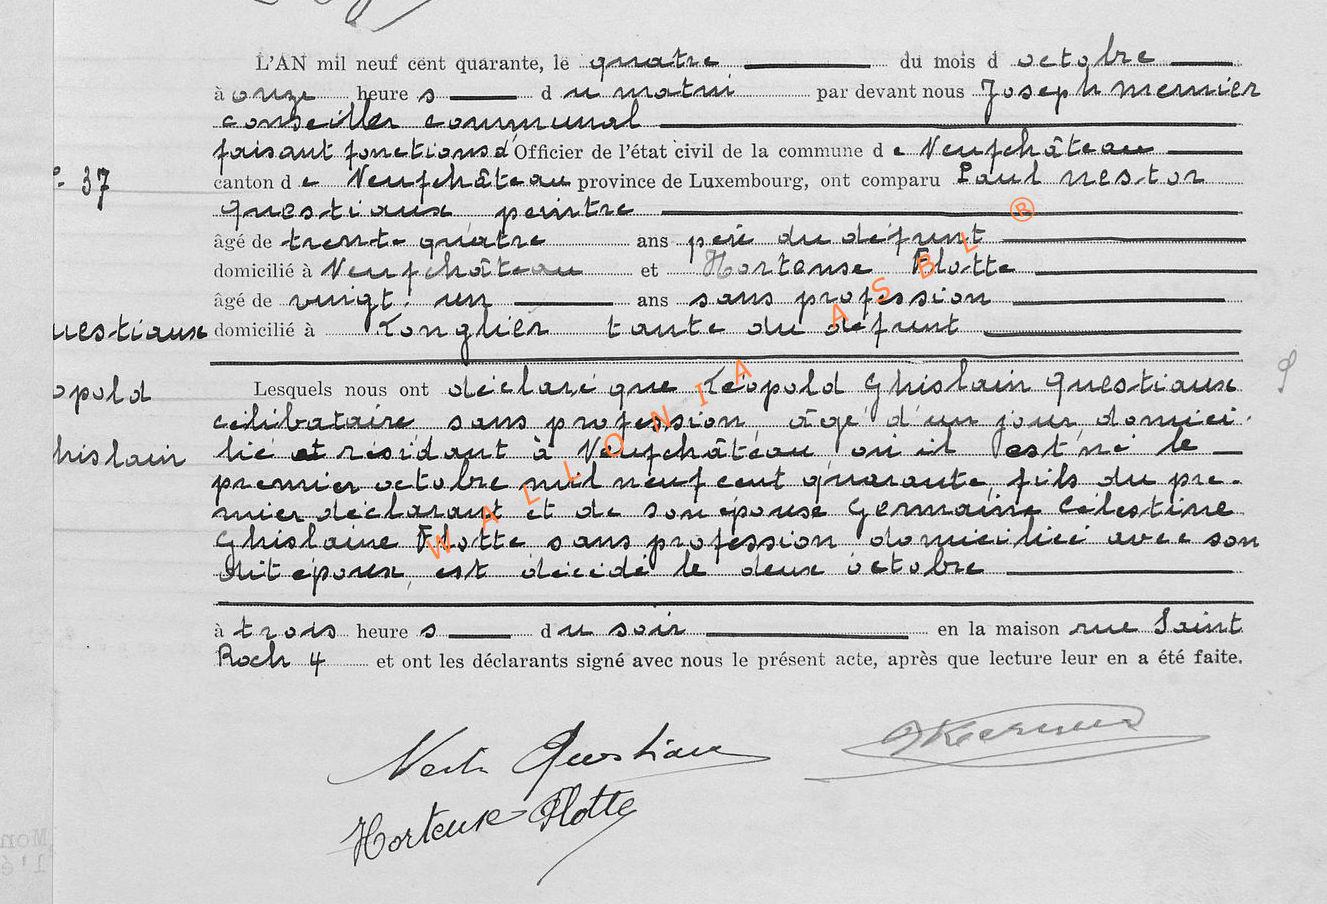 L'AN mil neuf cent quarante, le quatre du mois d octobre
à onze heure s d u matin par devant nous Joseph Mernier
conseiller communal
faisant fonctions d'Officier de l'état civil de la commune d e Neufchâteau
N° 37
canton d e Neufchâteau province de Luxembourg, ont comparu Paul Nestor
Questiaux peintre
âgé de trente quatre ans père du défunt
domicilié à Neufchâteau et Hortense Flotte
âgé de vingt. un ans sans profession
uestiaux
domicilié à Longlier tante du défunt
opold
Lesquels nous ont déclaré que Léopold Ghislain Questiaux
célibataire sans profession, âgé d'un jour, domici-
hislain
lié et résidant à Neufchâteau où il est né le
premier octobre mil neuf cent quarante, fils du pre-
mier déclarant et de son épouse Germaine Célestine
Ghislaine Flotte sans profession domiciliée avec son
dit époux, est décédé le deux octobre
à trois heure s d u soir en la maison rue Saint
Roch 4 et ont les déclarants signé avec nous le présent acte, après que lecture leur en a été faite.
Questiaux
Hortense Flotte
WALLONIA ASBL ®